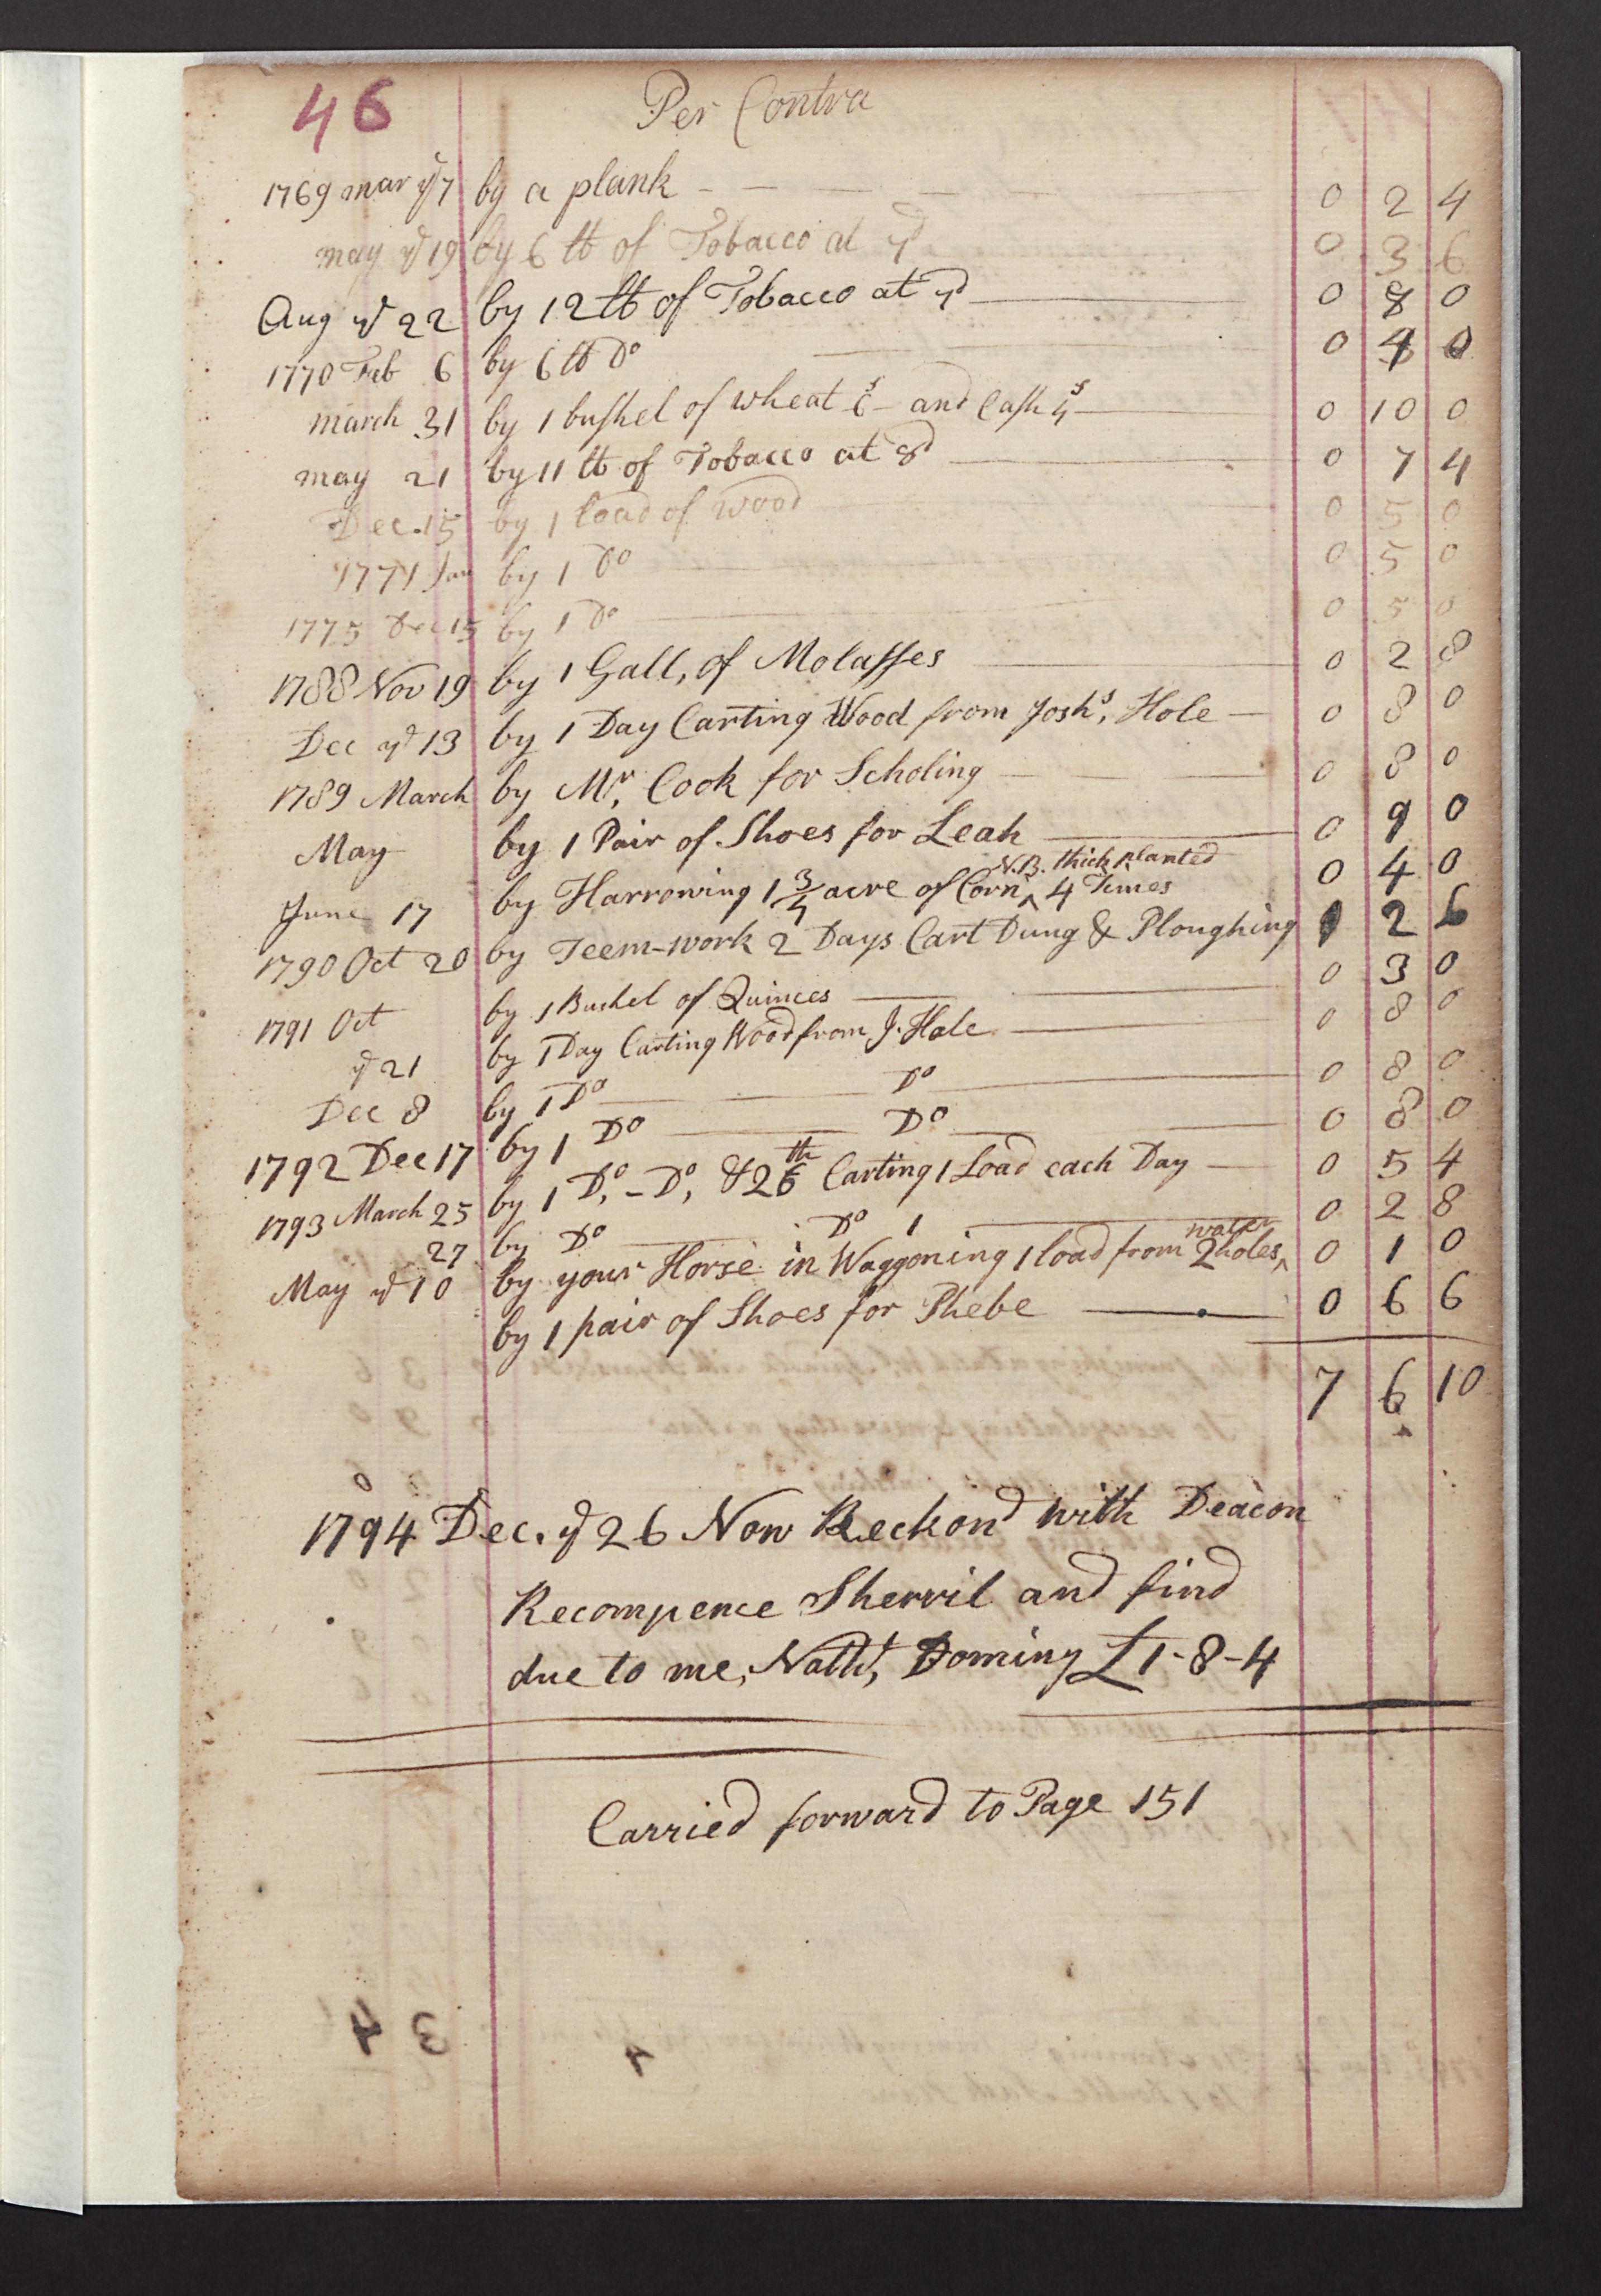 46 Per Contra
1769 mar ye 7 by a plank - - 0 2 4
may ye 19 by 6 lb of Tobacco at 7d 0 3 6
Aug ye 22 by 12 lb of Tobacco at 7d 0 8 0
1770 Feb 6 by 6 lb Do 0 4 0
march 31 by 1 bushel of wheat 6s - and Cash 4s 0 10 0
may 21 by 11 lb of Tobacco at 8d 0 7 4
Dec. 15 by 1 load of wood 0 5 0
1771 Jan by 1 Do 0 5 0
1775 Dec 15 by 1 Do 0 5 0
1788 Nov 19 by 1 Gall, of Molasses 0 2 8
Dec ye 13 by 1 Day Carting Wood from Joshs, Hole 0 8 0
1789 March by Mr, Cook for Scholing 0 8 0
May by 1 Pair of Shoes for Leah 0 9 0
N.B. thick planted
June 17 by Harrowing 1 3/4 acre of Corn ^ 4 Times 0 4 0
1790 Oct 20 by Teem-work 2 Days Cart Dung & Ploughing 1 2 6
1791 Oct by 1 Bushel of Quinces 0 3 0
ye 21 by 1 Day Carting Wood from J. Hole 0 8 0
Dec 8 by 1 Do Do 0 8 0
1792 Dec 17 by 1 Do Do 0 8 0
1793 March 25 by 1 Do, - Do, & 26th Carting 1 Load each Day 0 5 4
27 by Do Do 1 0 2 8
water
May ye 10 by your Horse in Waggoning 1 load from 2 holes ^ 0 1 0
by 1 pair of Shoes for Phebe 0 6 6
7 6 10
1794 Dec. ye 26 Now Reckond with Deacon
Recompence Sherril and find
due to me, Nathl, Dominy £1-8-4
Carried forward to Page 151